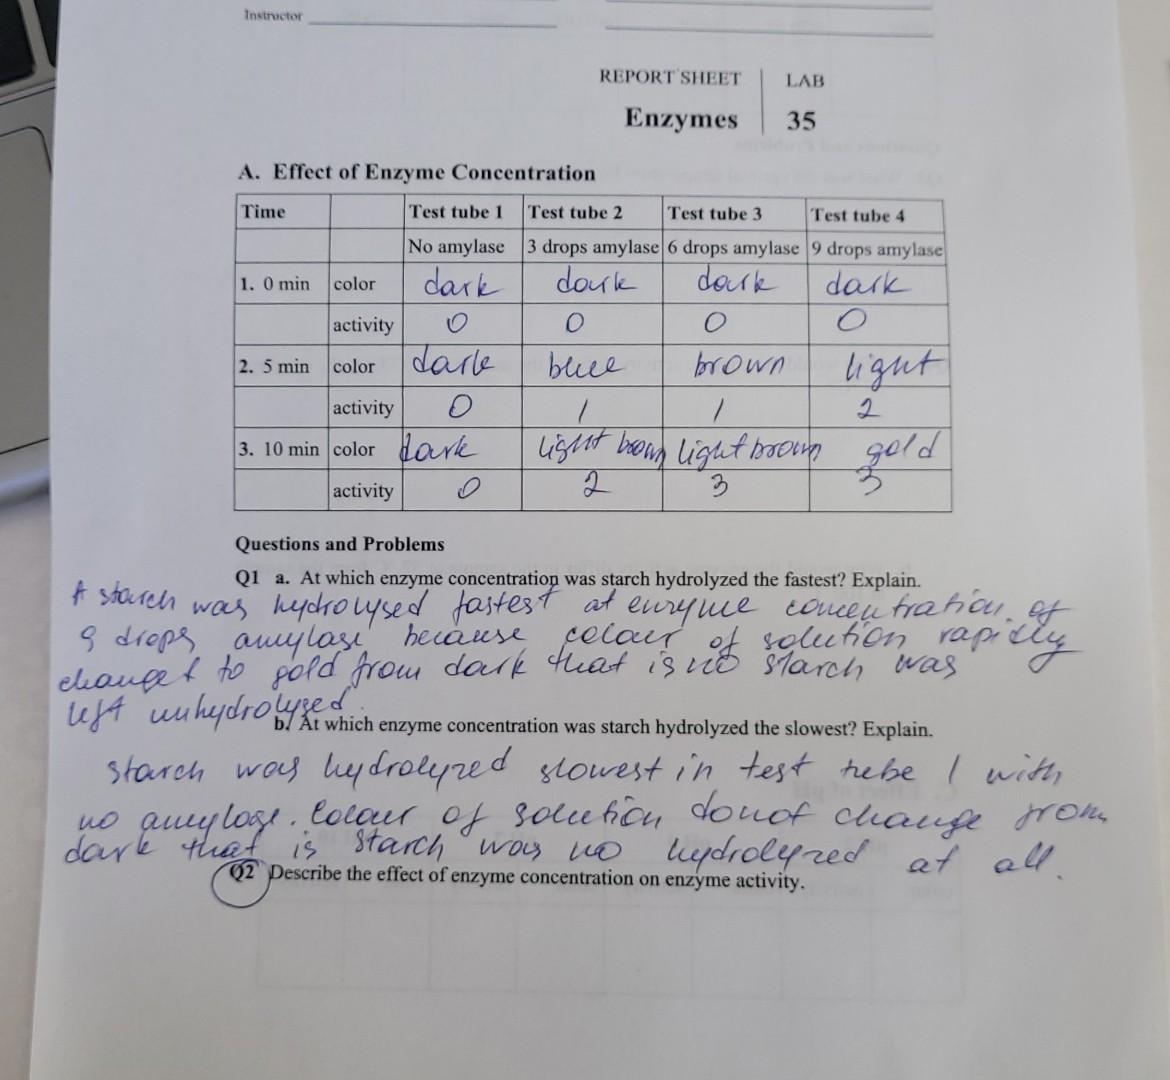 Instructor
REPORT SHEET LAB
Enzymes 35
A. Effect of Enzyme Concentration
Time Test tube 1 Test tube 2 Test tube 3 Test tube 4
No amylase 3 drops amylase 6 drops amylase 9 drops amylase
1. 0 min color dark dark dark dark
activity 0 0 0 0
2. 5 min color dark blue brown light
activity 0 1 1 2
3. 10 min color dark light brown light brown gold
activity 0 2 3 3
Questions and Problems
Q1 a. At which enzyme concentration was starch hydrolyzed the fastest? Explain.
A starch was hydrolysed fastest at enzyme concentration of
9 drops amylase because colour of solution rapidly
changed to gold from dark that is no starch was
left unhydrolyzed.
b. At which enzyme concentration was starch hydrolyzed the slowest? Explain.
Starch was hydrolyzed slowest in test tube 1 with
no amylase. Colour of solution donot change from
dark that is starch was no hydrolyzed at all.
Q2 Describe the effect of enzyme concentration on enzyme activity.